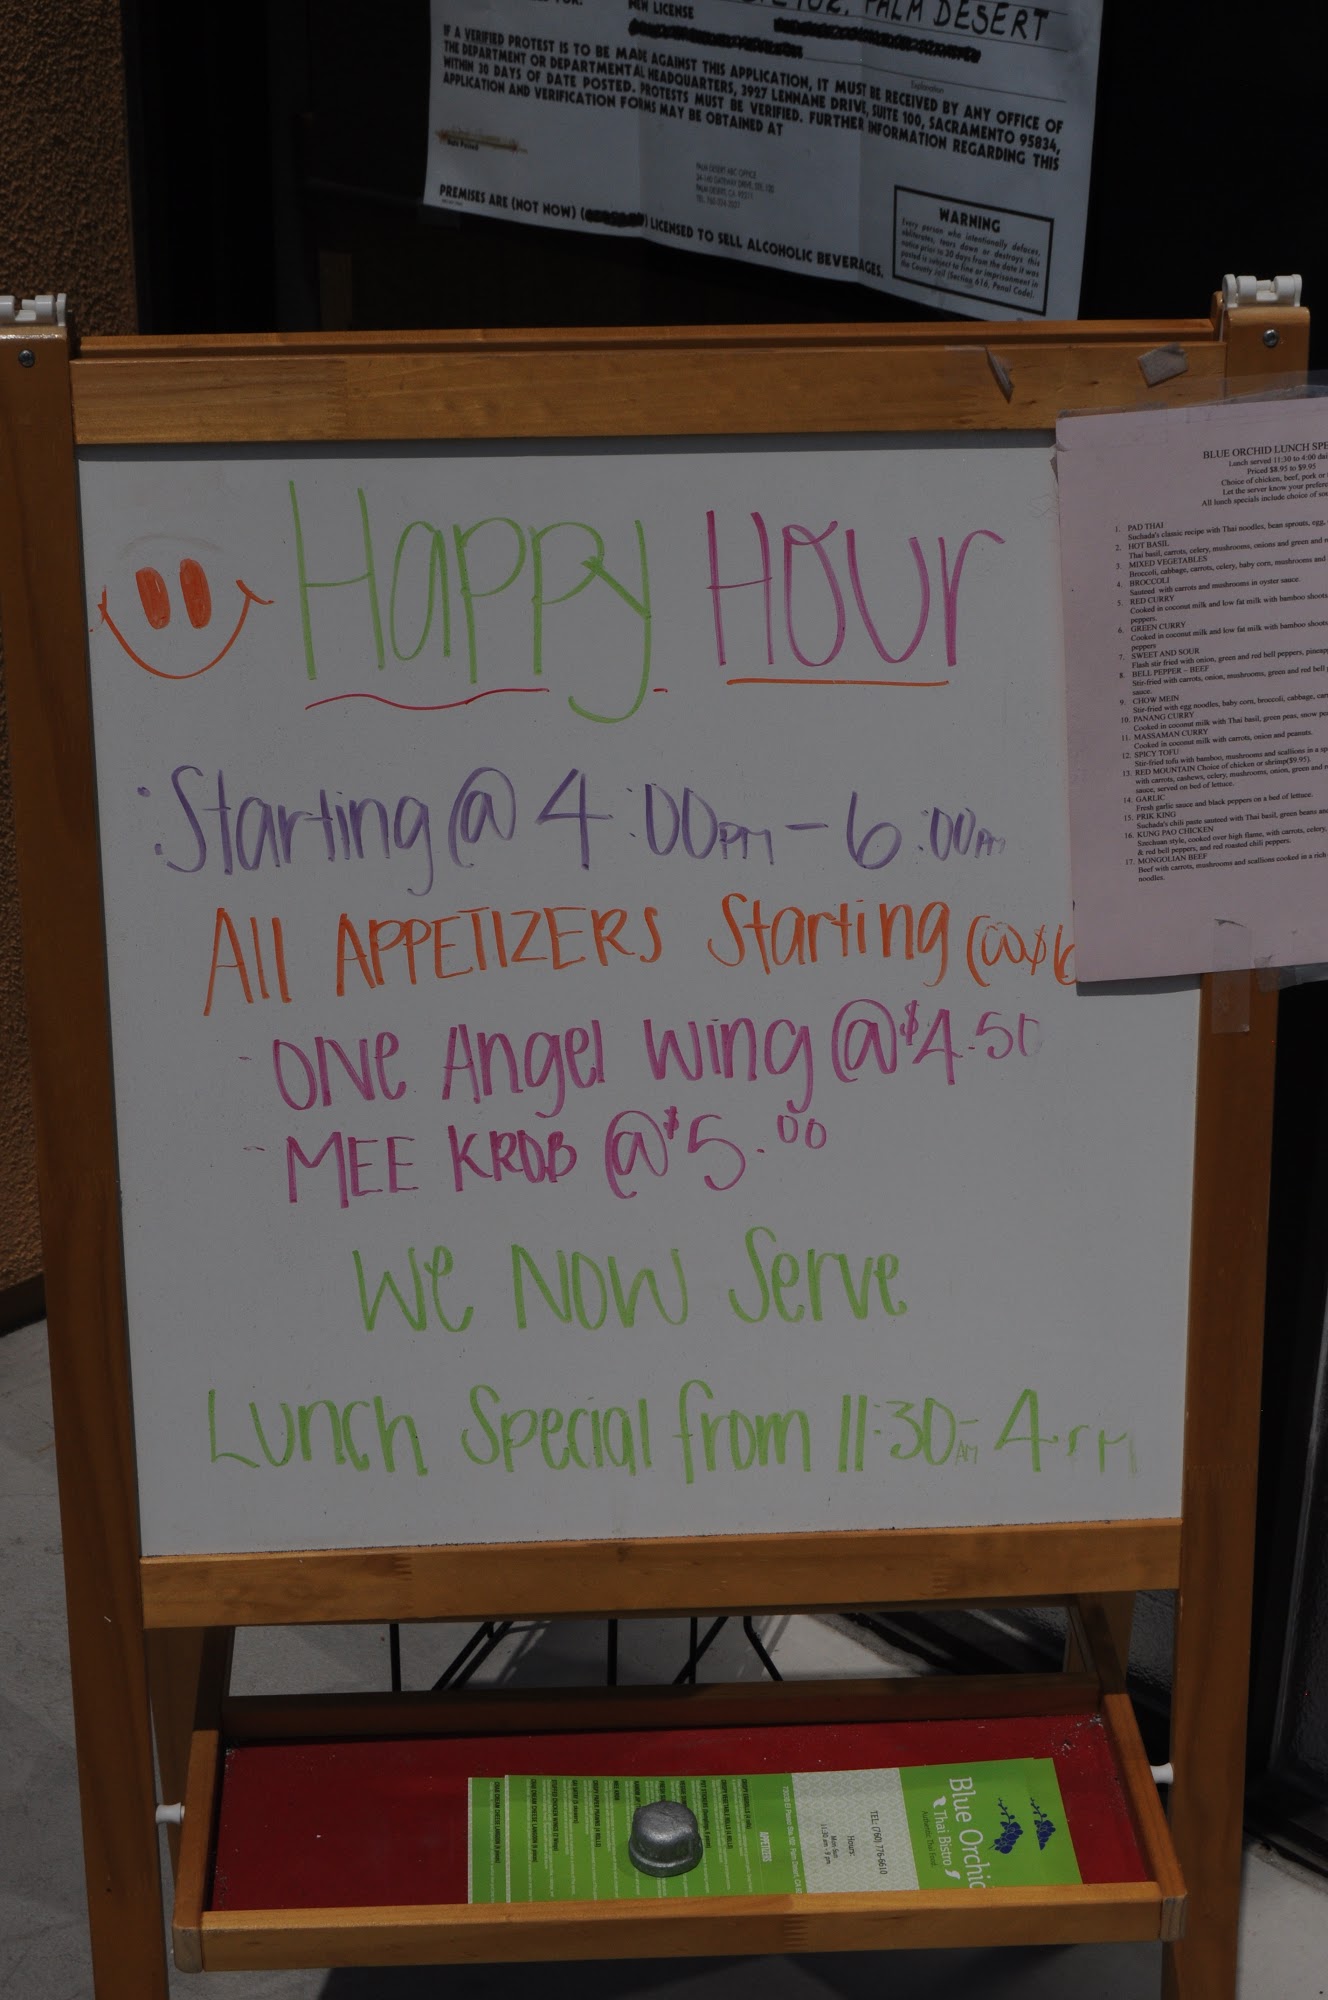 NEW LICENSE
PALM DESERT
IF A VERIFIED PROTEST IS TO BE MADE AGAINST THIS APPLICATION, IT MUST BE RECEIVED BY ANY OFFICE OF
THE DEPARTMENT OR DEPARTMENTAL HEADQUARTERS, 3927 LENNANE DRIVE, SUITE 100, SACRAMENTO 95834,
WITHIN 30 DAYS OF DATE POSTED. PROTESTS MUST BE VERIFIED. FURTHER INFORMATION REGARDING THIS
APPLICATION AND VERIFICATION FORMS MAY BE OBTAINED AT
Date Posted
PALM DESERT ABC OFFICE
PREMISES ARE (NOT NOW) LICENSED TO SELL ALCOHOLIC BEVERAGES.
WARNING
Every person who intentionally defaces,
obliterates, tears down or destroys this
notice prior to 30 days from the date it was
posted is subject to fine or imprisonment in
the County Jail (Section 616, Penal Code).
Happy Hour
Starting @ 4:00PM - 6:00PM
All APPETIZERS Starting @ $6
- ONE Angel Wing @ $4.50
- MEE KROB @ $5.00
We Now Serve
Lunch Special from 11:30AM - 4PM
BLUE ORCHID LUNCH SPE
Lunch served 11:30 to 4:00 dai
Priced $8.95 to $9.95
Choice of chicken, beef, pork or
Let the server know your prefere
All lunch specials include choice of sou
1. PAD THAI
Suchada's classic recipe with Thai noodles, bean sprouts, egg,
2. HOT BASIL
Thai basil, carrots, celery, mushrooms, onions and green and r
3. MIXED VEGETABLES
Broccoli, cabbage, carrots, celery, baby corn, mushrooms and
4. BROCCOLI
Sauteed with carrots and mushrooms in oyster sauce.
5. RED CURRY
Cooked in coconut milk and low fat milk with bamboo shoots
peppers.
6. GREEN CURRY
Cooked in coconut milk and low fat milk with bamboo shoots
peppers
7. SWEET AND SOUR
Flash stir fried with onion, green and red bell peppers, pineap
8. BELL PEPPER – BEEF
Stir-fried with carrots, onion, mushrooms, green and red bell
sauce.
9. CHOW MEIN
Stir-fried with egg noodles, baby corn, broccoli, cabbage, car
10. PANANG CURRY
Cooked in coconut milk with Thai basil, green peas, snow pe
11. MASSAMAN CURRY
Cooked in coconut milk with carrots, onion and peanuts.
12. SPICY TOFU
Stir-fried tofu with bamboo, mushrooms and scallions in a sp
13. RED MOUNTAIN Choice of chicken or shrimp($9.95).
with carrots, cashews, celery, mushrooms, onion, green and r
sauce, served on bed of lettuce.
14. GARLIC
Fresh garlic sauce and black peppers on a bed of lettuce.
15. PRIK KING
Suchada's chili paste sauteed with Thai basil, green beans and
16. KUNG PAO CHICKEN
Szechuan style, cooked over high flame, with carrots, celery,
& red bell peppers, and red roasted chili peppers.
17. MONGOLIAN BEEF
Beef with carrots, mushrooms and scallions cooked in a rich
noodles.
Blue Orchid
Thai Bistro
Authentic Thai Food
TEL: (760) 776-6610
Hours:
Mon-Sun
11:30 am - 9 pm
APPETIZERS